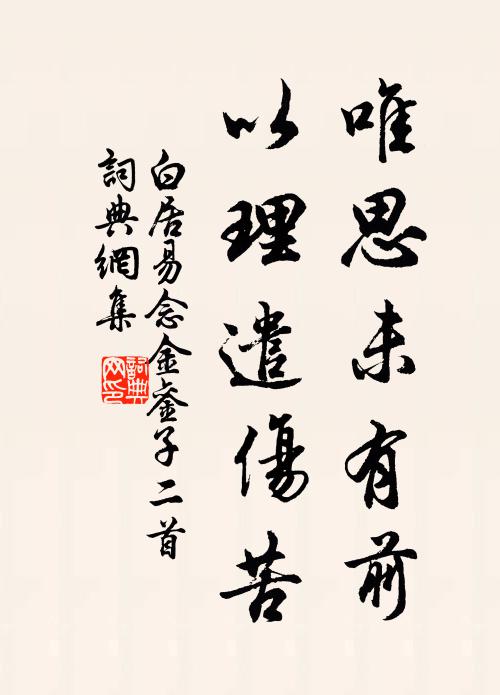 唯思未有前
以理遣傷苦
白居易念金鑾子二首
詞典網集
詞典
网印